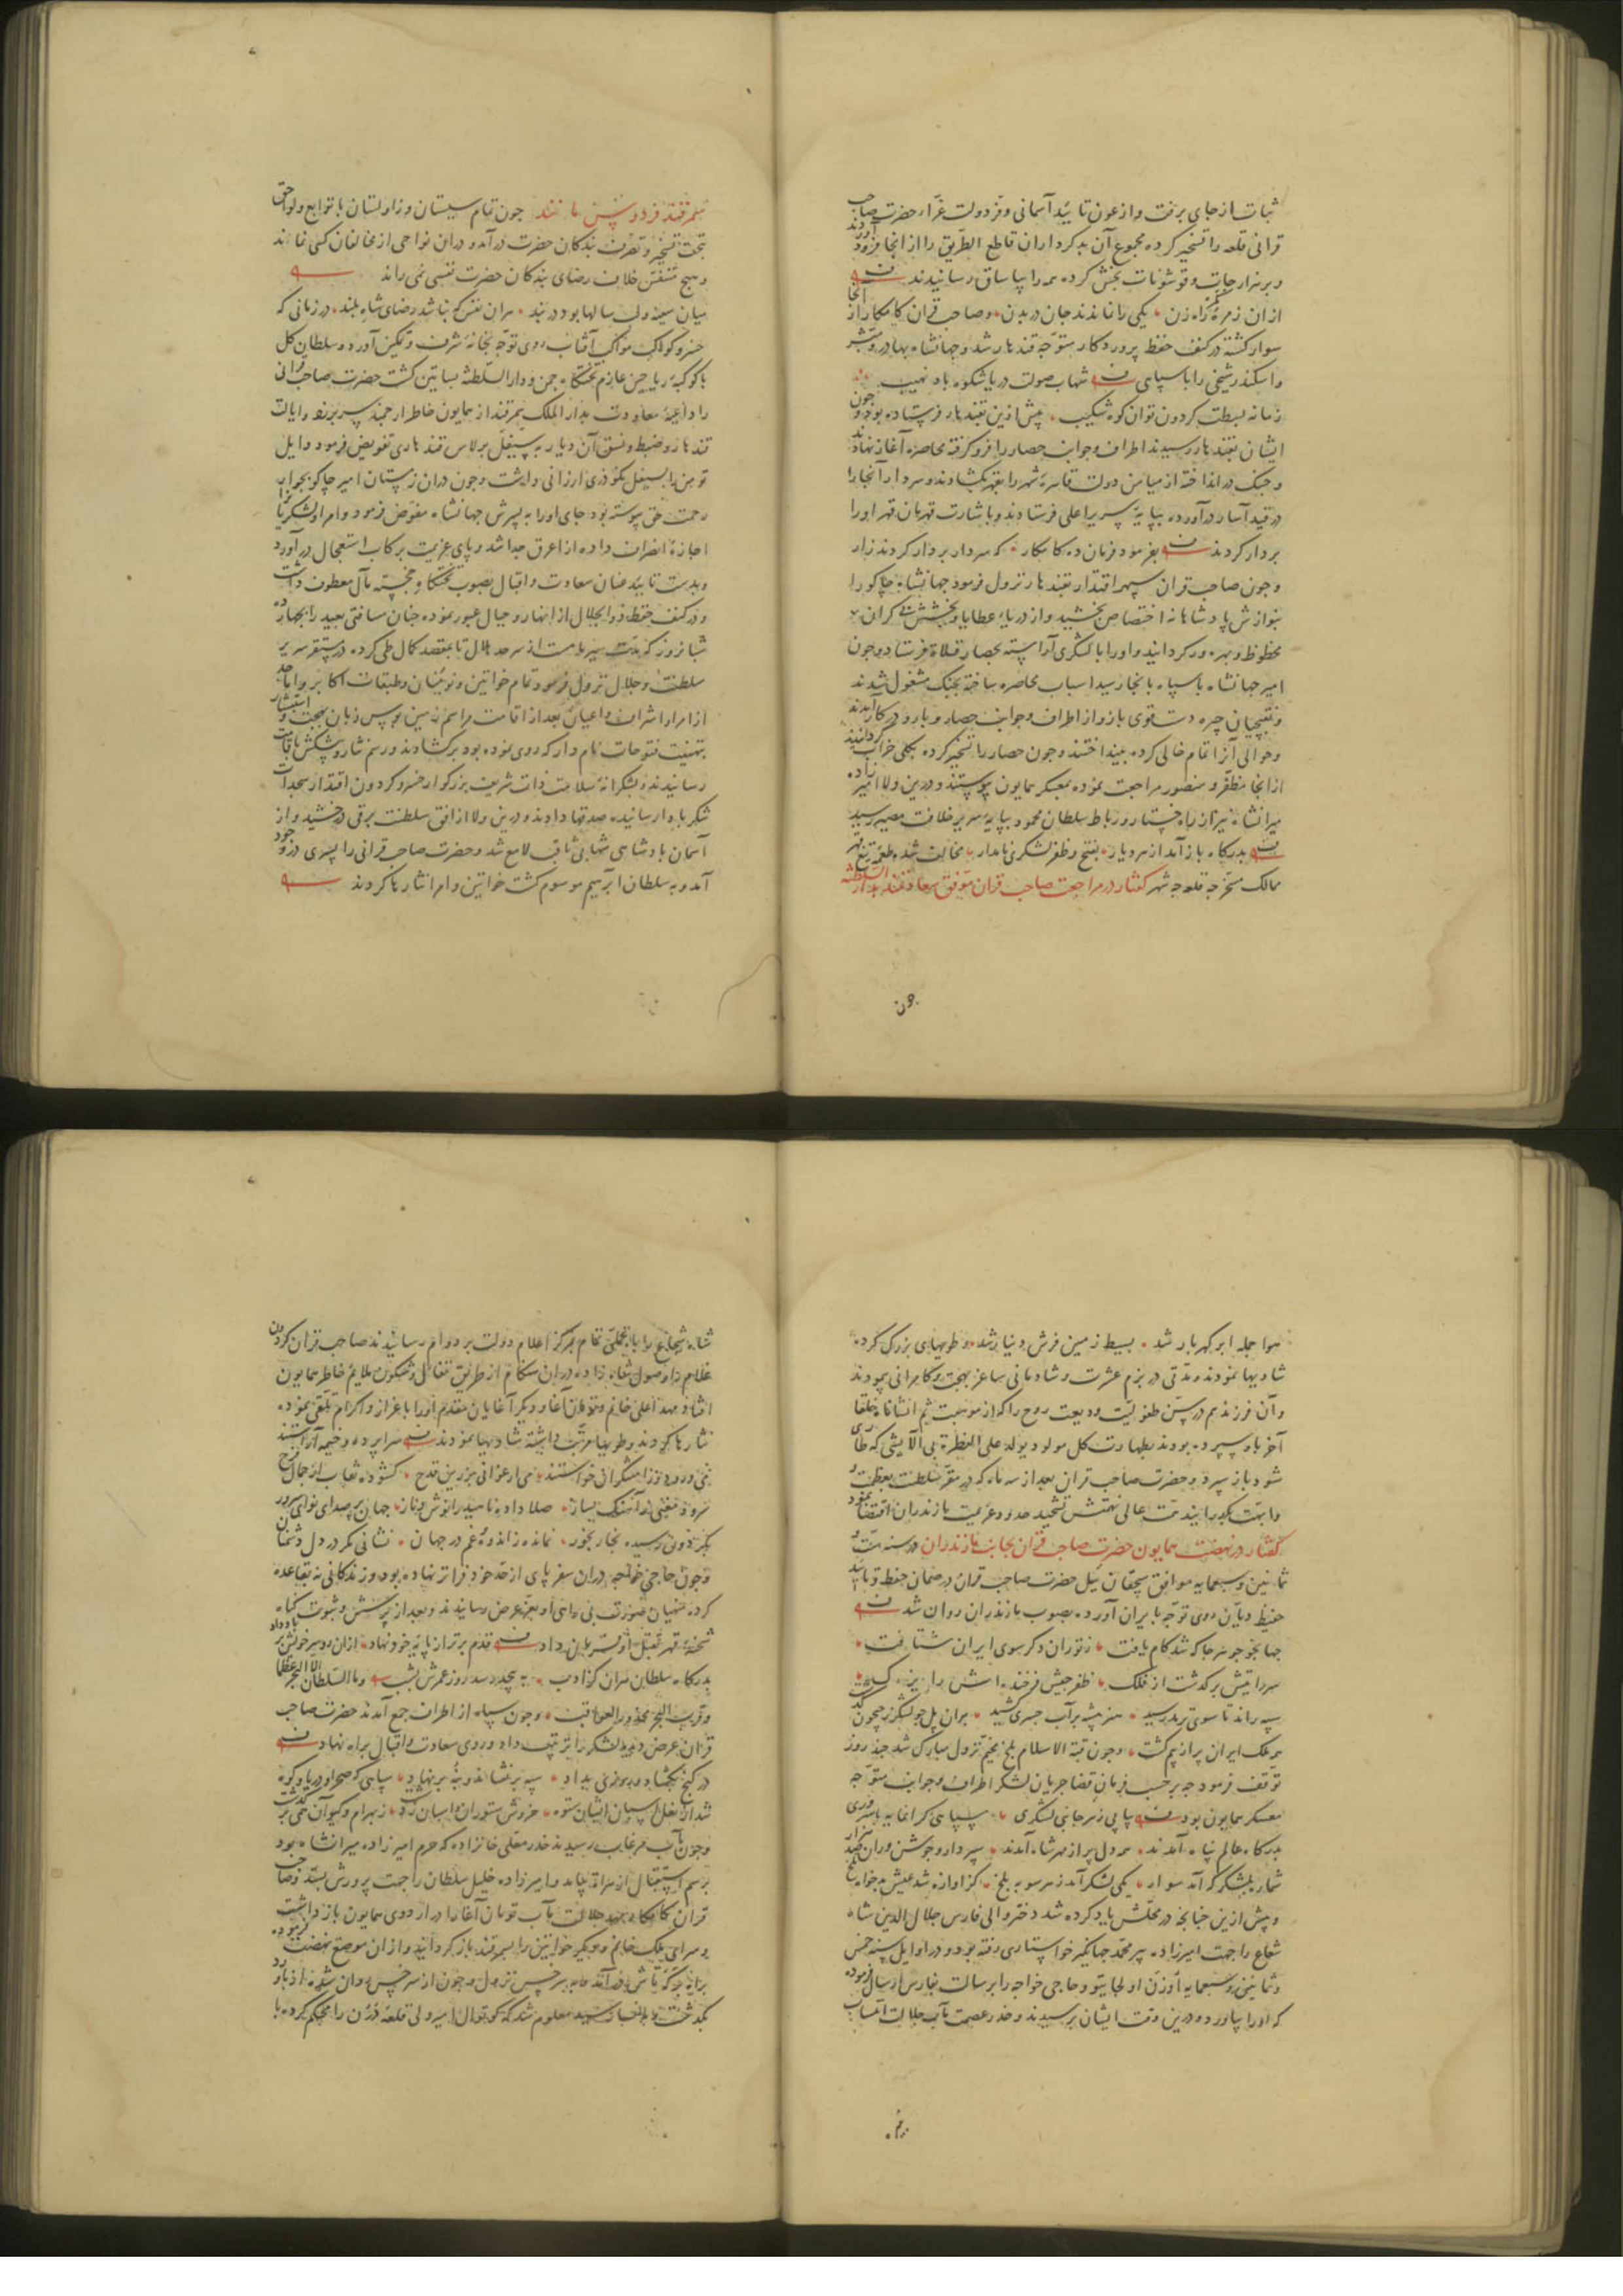 ثبات از جای برفت و از عون تایید آسمانی و فر دولت غرار حضرت صاحب
قرانی قلعه را تسخیر کرده مجموع آن بدکرداران قاطع الطریق را از انجا فرود آوردند
و بر هزارجات و قوشونات بخش کرده همه را بیاساق رسانیدند
ازان زمره گمره راه زن یکی را نماندند جان در بدن و صاحب قران کامکار از انجا
سوار کشته در کنف حفظ پروردکار متوجه قندهار شد و جهانشاه بهادر و مبشر
و اسکندر شیخی را با سپاهی شهاب صولت دریا شکوه باد نهیب
زمانه بسطت کردون توان کوه شکیب پیش ازین بقندهار فرستاده بود و چون
ایشان بقندهار رسیدند اطراف و جوانب حصار را فرو کرفته محاصره آغاز نهادند
و جنک در انداخته از میامن دولت قاهره شهر را بقهر بکشادند و سردار آنجا را
در قید آسار در آورده بپایه سریر اعلی فرستادند و باشارت قهرمان قهر او را
بر دار کردند بفرمود فرمان ده کامکار که سردار بردار کردند زار
و چون صاحب قران سپهر اقتدار بقندهار نزول فرمود جهانشاه چاکو را
بنوازش پادشاهانه اختصاص بخشید و از دریای عطایا و بخشش بی کران
محظوظ و بهره ور کردانید و او را با لشکری آراسته بحصار قلاة فرستاد و چون
امیر جهانشاه با سپاه بانجا رسید اسباب محاصره ساخته بجنک مشغول شدند
و نقبچیان چیره دست قوی بازو از اطراف و جوانب حصار و بارو در کار آمدند
و حوالی آنرا تمام خالی کرده بینداختند و چون حصار را تسخیر کرده بکلی خراب کردانیدند
از انجا مظفر و منصور مراجعت نموده بمعسکر همایون پیوستند و درین ولا امیر زاده
میرانشاه نیز از راه و رباط سلطان محمود بپایه سریر خلافت مصیر رسید
بدرکاه باز آمد از هر دیار بفتح و ظفر لشکری نامدار مخالف شده طعمه تیغ قهر
ممالک مسخر چه قلعه چه شهر کفتار در مراجعت صاحب قران موفق سعادتمند بدار السلطنه
چون
سمرقند فردوس مانند چون تمام سیستان و زاولستان با توابع و لواحق
بتحت تسخیر و تصرف بندکان حضرت در آمد و دران نواحی از مخالفان کسی نماند
و هیچ متنفس خلاف رضای بندکان حضرت نفسی نمی راند
میان سینه و لب سالها بود در بند هران نفس که نباشد رضای شاه بلند در زمانی که
خسرو کواکب مواکب آفتاب روی توجه بخانه شرف و تمکین آورد و سلطان کل
با کوکبه ریاحین عازم تختکاه چمن و دار السلطنه بساتین کشت حضرت صاحب قرانی
را داعیه معاودت بدار الملک سمرقند از همایون خاطر ارجمند سر برزد و ایالت
قندهار و ضبط و نسق آن دیار به سیفل برلاس قندهاری تفویض فرمود و ایل
تومن را بسیفل نکودری ارزانی داشت و چون دران زمستان امیر چاکو بجوار
رحمت حق پیوسته بود جای او را به پسرش جهانشاه مفوض فرمود و امرا و لشکریان را
اجازه انصراف داده از اغرق جدا شد و پای عزیمت برکاب استعجال در آورد
و بدست تایید عنان سعادت و اقبال بصوب تختکاه خجسته مآل معطوف داشت
و در کنف حفظ ذو الجلال از انهار و جبال عبور نموده چنان مسافتی بعید را بچهارده
شبانروز که مدت سیر ماه است از سرحد هلال تا بمقصد کمال طی کرده در مستقر سریر
سلطنت و جلال نزول فرمود تمام خواتین و نوئینان و طبقات اکابر و اماجد
از امرا و اشراف و اعیان بعد از اقامت مراسم زمین بوس زبان ببهجت و استبشار
بتهنیت فتوحات نامدار که روی نموده بود برکشادند و رسم نثار و پیشکش باقامت
رسانیدند و بشکرانه سلامت ذات شریف بزرکوار خسرو کردون اقتدار سجدات
شکر بادا رسانیده صدقها دادند و درین ولا از افق سلطنت برقی درخشید و از
آسمان پادشاهی شهابی ثاقب لامع شد و حضرت صاحب قرانی را پسری در وجود
آمد و به سلطان ابرهیم موسوم کشت خواتین و امرا نثارها کردند
هوا جمله ابر کهربار شد بسیط زمین فرش دنیا شد و طویهای بزرک کرده
شادیها نمودند و مدتی در بزم عشرت و شادمانی ساغر بهجت و کامرانی پیمودند
و آن فرزند هم در سن طفولیت ودیعت روح را که از موهبت ثم انشاناه خلقا
آخر باو سپرده بودند بطهارت کل مولود یولد علی الفطرة بی آلایشی که طاری
شود باز سپرد و حضرت صاحب قران بعد از سه ماه که در مقر سلطنت بعظمت و
و ابهت بکذرانید همت عالی نهمتش تشحید حدود و عزیمت مازندران اقتضا نمود
کفتار در نهضت همایون حضرت صاحب قران بجانب مازندران در سنه ست و
ثمانین و سبعمایه موافق سیچقان ئیل حضرت صاحب قران در ضمان حفظ و تایید
حفیظ دیان روی توجه بایران آورده بصوب مازندران روان شد
جهانجو چو هر جا که شد کام یافت ز توران دکر سوی ایران شتافت
سر رایتش بر کذشت از فلک ظفر جیش فرخنده اش را یزک
سپه راند تا سوی ترمد رسید هنر پیشه بر آب جسری کشید بران پل چو لشکر ز جیحون کذشت
همه ملک ایران پر از بیم کشت و چون قبة الاسلام بلخ مخیم نزول مبارک شد چند روز
توقف فرمود چه برحسب فرمان قضا جریان لشکر اطراف و جوانب متوجه
معسکر همایون بود پیاپی ز هر جانبی لشکری سپاهی کرانمایه با سروری
بدرکاه عالم پناه آمدند همه دل پر از مهر شاه آمدند
کسی لشکر آمد ز هر سو به بلخ
و پیش ازین چنانچه در محلش یاد کرده شد دختر والی فارس جلال الدین شاه
شجاع را جهت امیرزاده پیر محمد جهانکیر خواستاری رفته بود و در اوایل سنه خمس
و ثمانین و سبعمایه اوزن اولجایتو و حاجی خواجه را برسالت بفارس ارسال فرموده
که او را بیاورد و درین وقت ایشان برسیدند و خدر عصمت مآب جلالت انتساب
شاه شجاع را با تجملی تمام بمرکز اعلام دولت بر دوام رسانیدند صاحب قران کردون
غلام را وصول شاه زاده دران هنکام از طریق تفاؤل و شکون ملایم خاطر همایون
افتاد و مهد اعلی خانم و تومان آغا و دیکر آغایان مقدم او را باعزاز و اکرام تلقی نموده
نثارها کردند و طویها مرتب داشته شادیها نمودند سراپرده و خیمه آراستند
می ارغوانی بزرین قدح کشوده نقاب از جمال فرح
صلا داده ناهید را نوش و ناز جهان پر صدای نوای سرور
نمانده ز اندوه و غم در جهان نشانی مکر در دل دشمنان
و چون حاجی خواجه دران سفر پای از حد خود فراتر نهاده بود و زندکانی نه بقاعده
کرده منهیان صورت بی راهی او بعز عرض رسانیدند و بعد از پرسش و ثبوت کناه
شحنه قهر بقتل او فرمان داد قدم برتر از پایه خود نهاد
بدرکاه سلطان مران کز ادب و ما السلطان الا البحر عظما
و قرب البحر محذور العواقب و چون سپاه از اطراف جمع آمدند حضرت صاحب
قران عرض دیده لشکر را ترتیب داد و روی سعادت و اقبال براه نهاد
در کنج بکشاد و روزی بداد سپه بر نشاند و بنه بر نهاد سپاهی که صحرا و دریا و کوه
شد از نعل اسبان ایشان ستوه خروش ستوران و اسبان ز بهرام و کیوان همی بر کذشت
و چون بآب مرغاب رسیدند خدر معلی خانزاده که حرم امیر زاده میرانشاه بود
برسم استقبال از هراة بیامد و امیرزاده خلیل سلطان را جهت پرورش بستد و صاحب
قران کامکار مهد جلالت مآب تومان آغا را در اردوی همایون باز داشت
و سرای ملک خانم و دیکر خواتین را بسمرقند باز کردانید و ازان موضع نهضت فرموده
بسرخس نزول و چون از سرخس روان شده از باورد
بکذشت معلوم شد که کوتوال امیر ولی قلعه درون را محکم کرده با